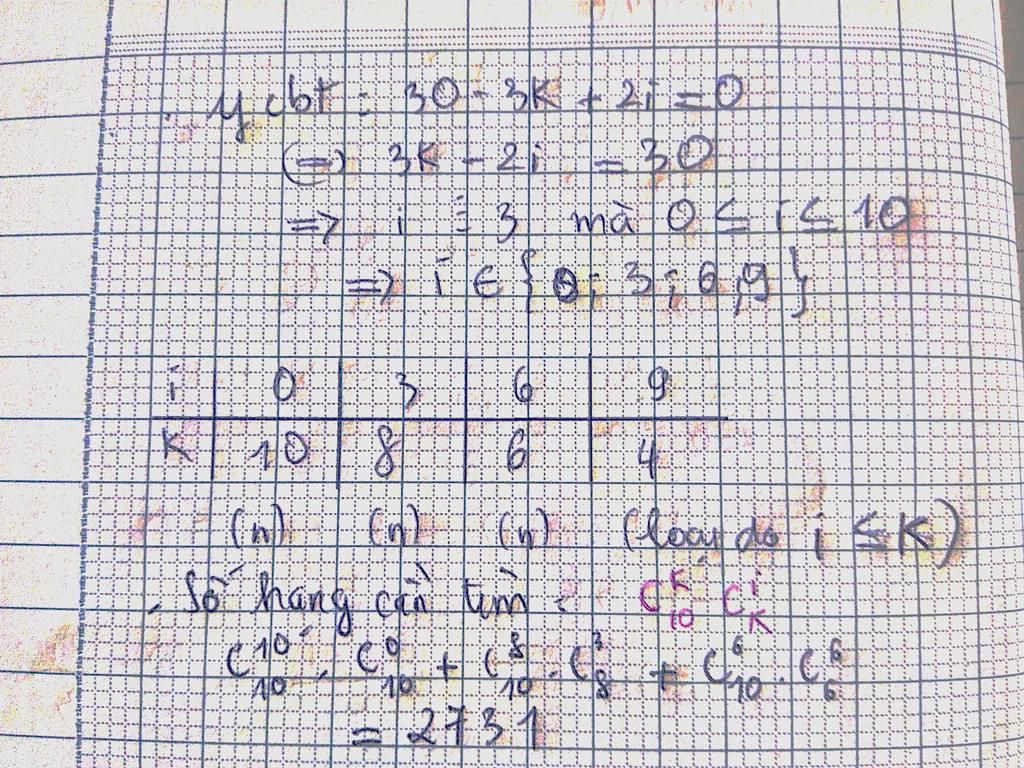 . ycbt: 30 - 3K + 2i = 0
(=) 3K - 2i = 30
=> i ⋮ 3 mà 0 ≤ i ≤ 10
=> i ∈ {0; 3; 6; 9}
i | 0 | 3 | 6 | 9
K | 10 | 8 | 6 | 4
(n) (n) (n) (loại do i ≤ K)
. Số hạng cần tìm: C_{10}^{K} . C_{K}^{i}
C_{10}^{10} . C_{10}^{0} + C_{10}^{8} . C_{8}^{3} + C_{10}^{6} . C_{6}^{6}
= 2731